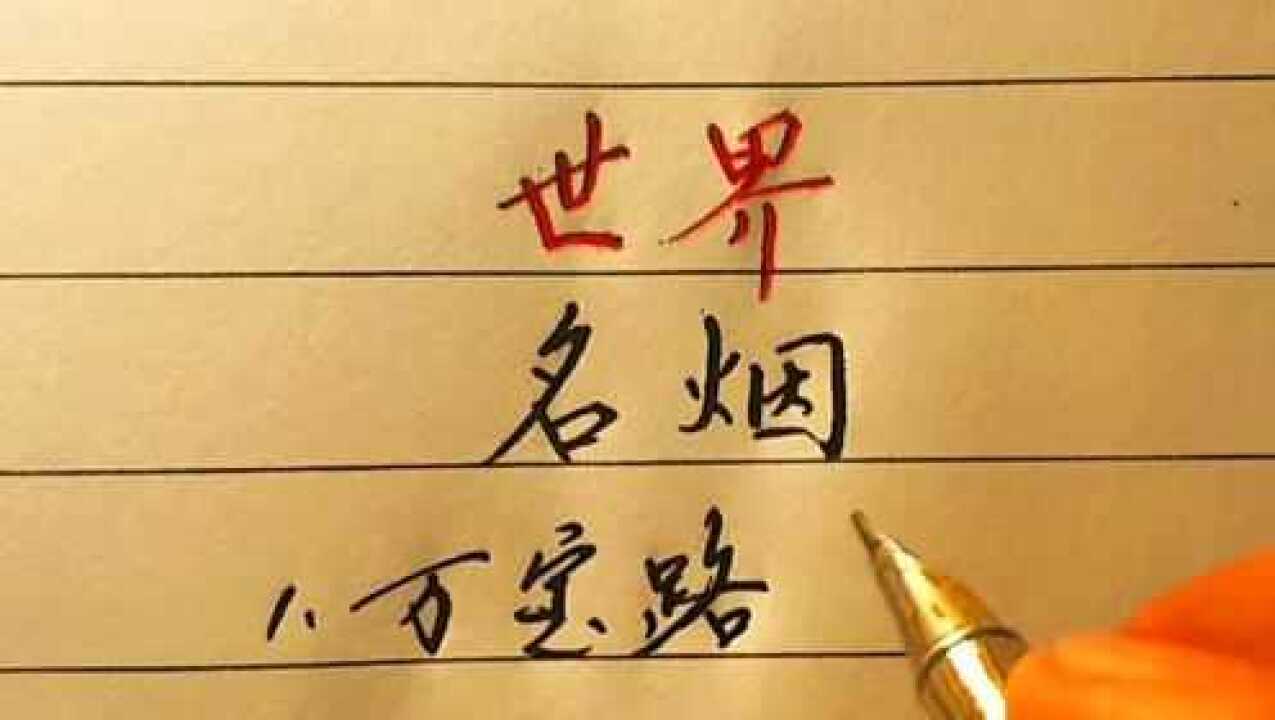 世界
名烟
1.万宝路